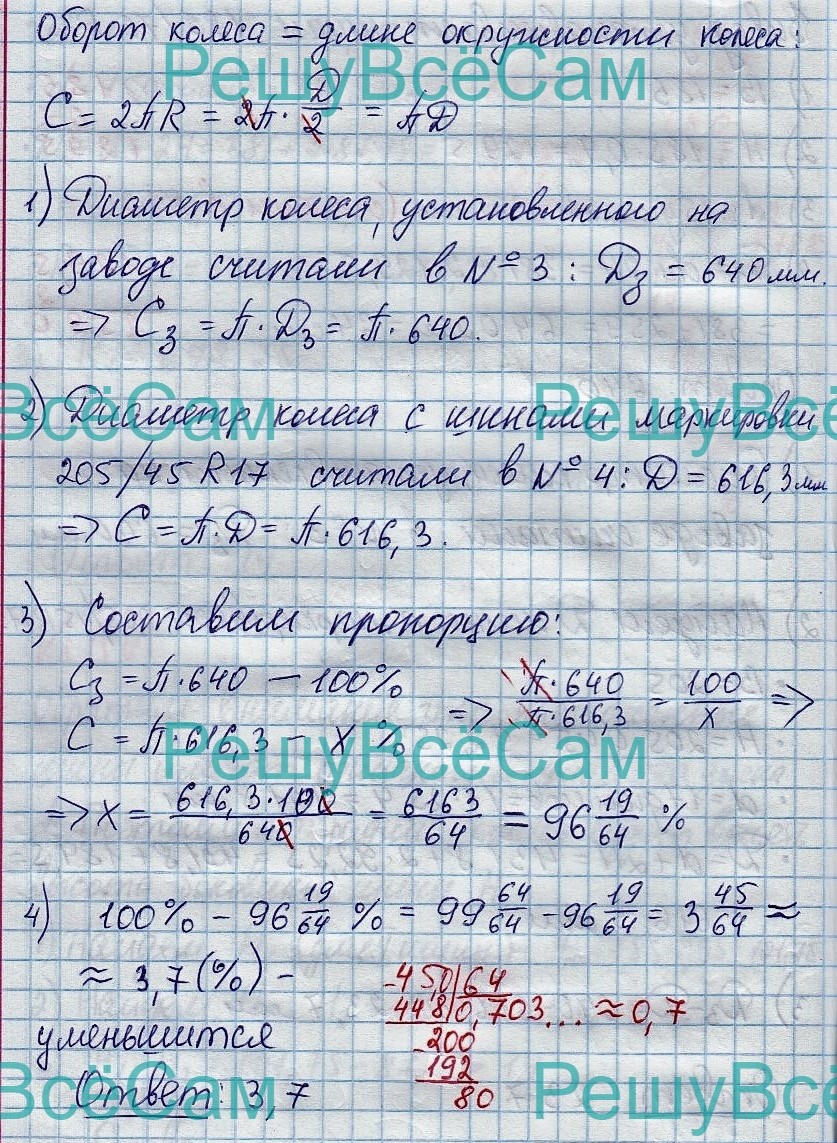 Оборот колеса = длине окружности колеса:
РешуВсёСам
C = 2πR = 2π · Д/2 = πД
1) Диаметр колеса, установленного на
заводе считали в № 3 : Дз = 640 мм.
=> Cз = π · Дз = π · 640.
ВсёСам РешуВсё
2) Диаметр колеса с шинами маркировки
205/45 R17 считали в № 4 : Д = 616,3 мм
=> C = π · Д = π · 616,3.
3) Составим пропорцию:
Cз = π · 640 — 100%
C = π · 616,3 — X %
=> π · 640 / π · 616,3 = 100 / X =>
РешуВсёСам
=> X = 616,3 · 100 / 640 = 6163 / 64 = 96 19/64 %
4) 100% - 96 19/64 % = 99 64/64 - 96 19/64 = 3 45/64 ≈
≈ 3,7 (%) -
уменьшится
45,0 | 64
448 | 0,703... ≈ 0,7
200
192
80
ВсёСам РешуВсё
Ответ: 3,7